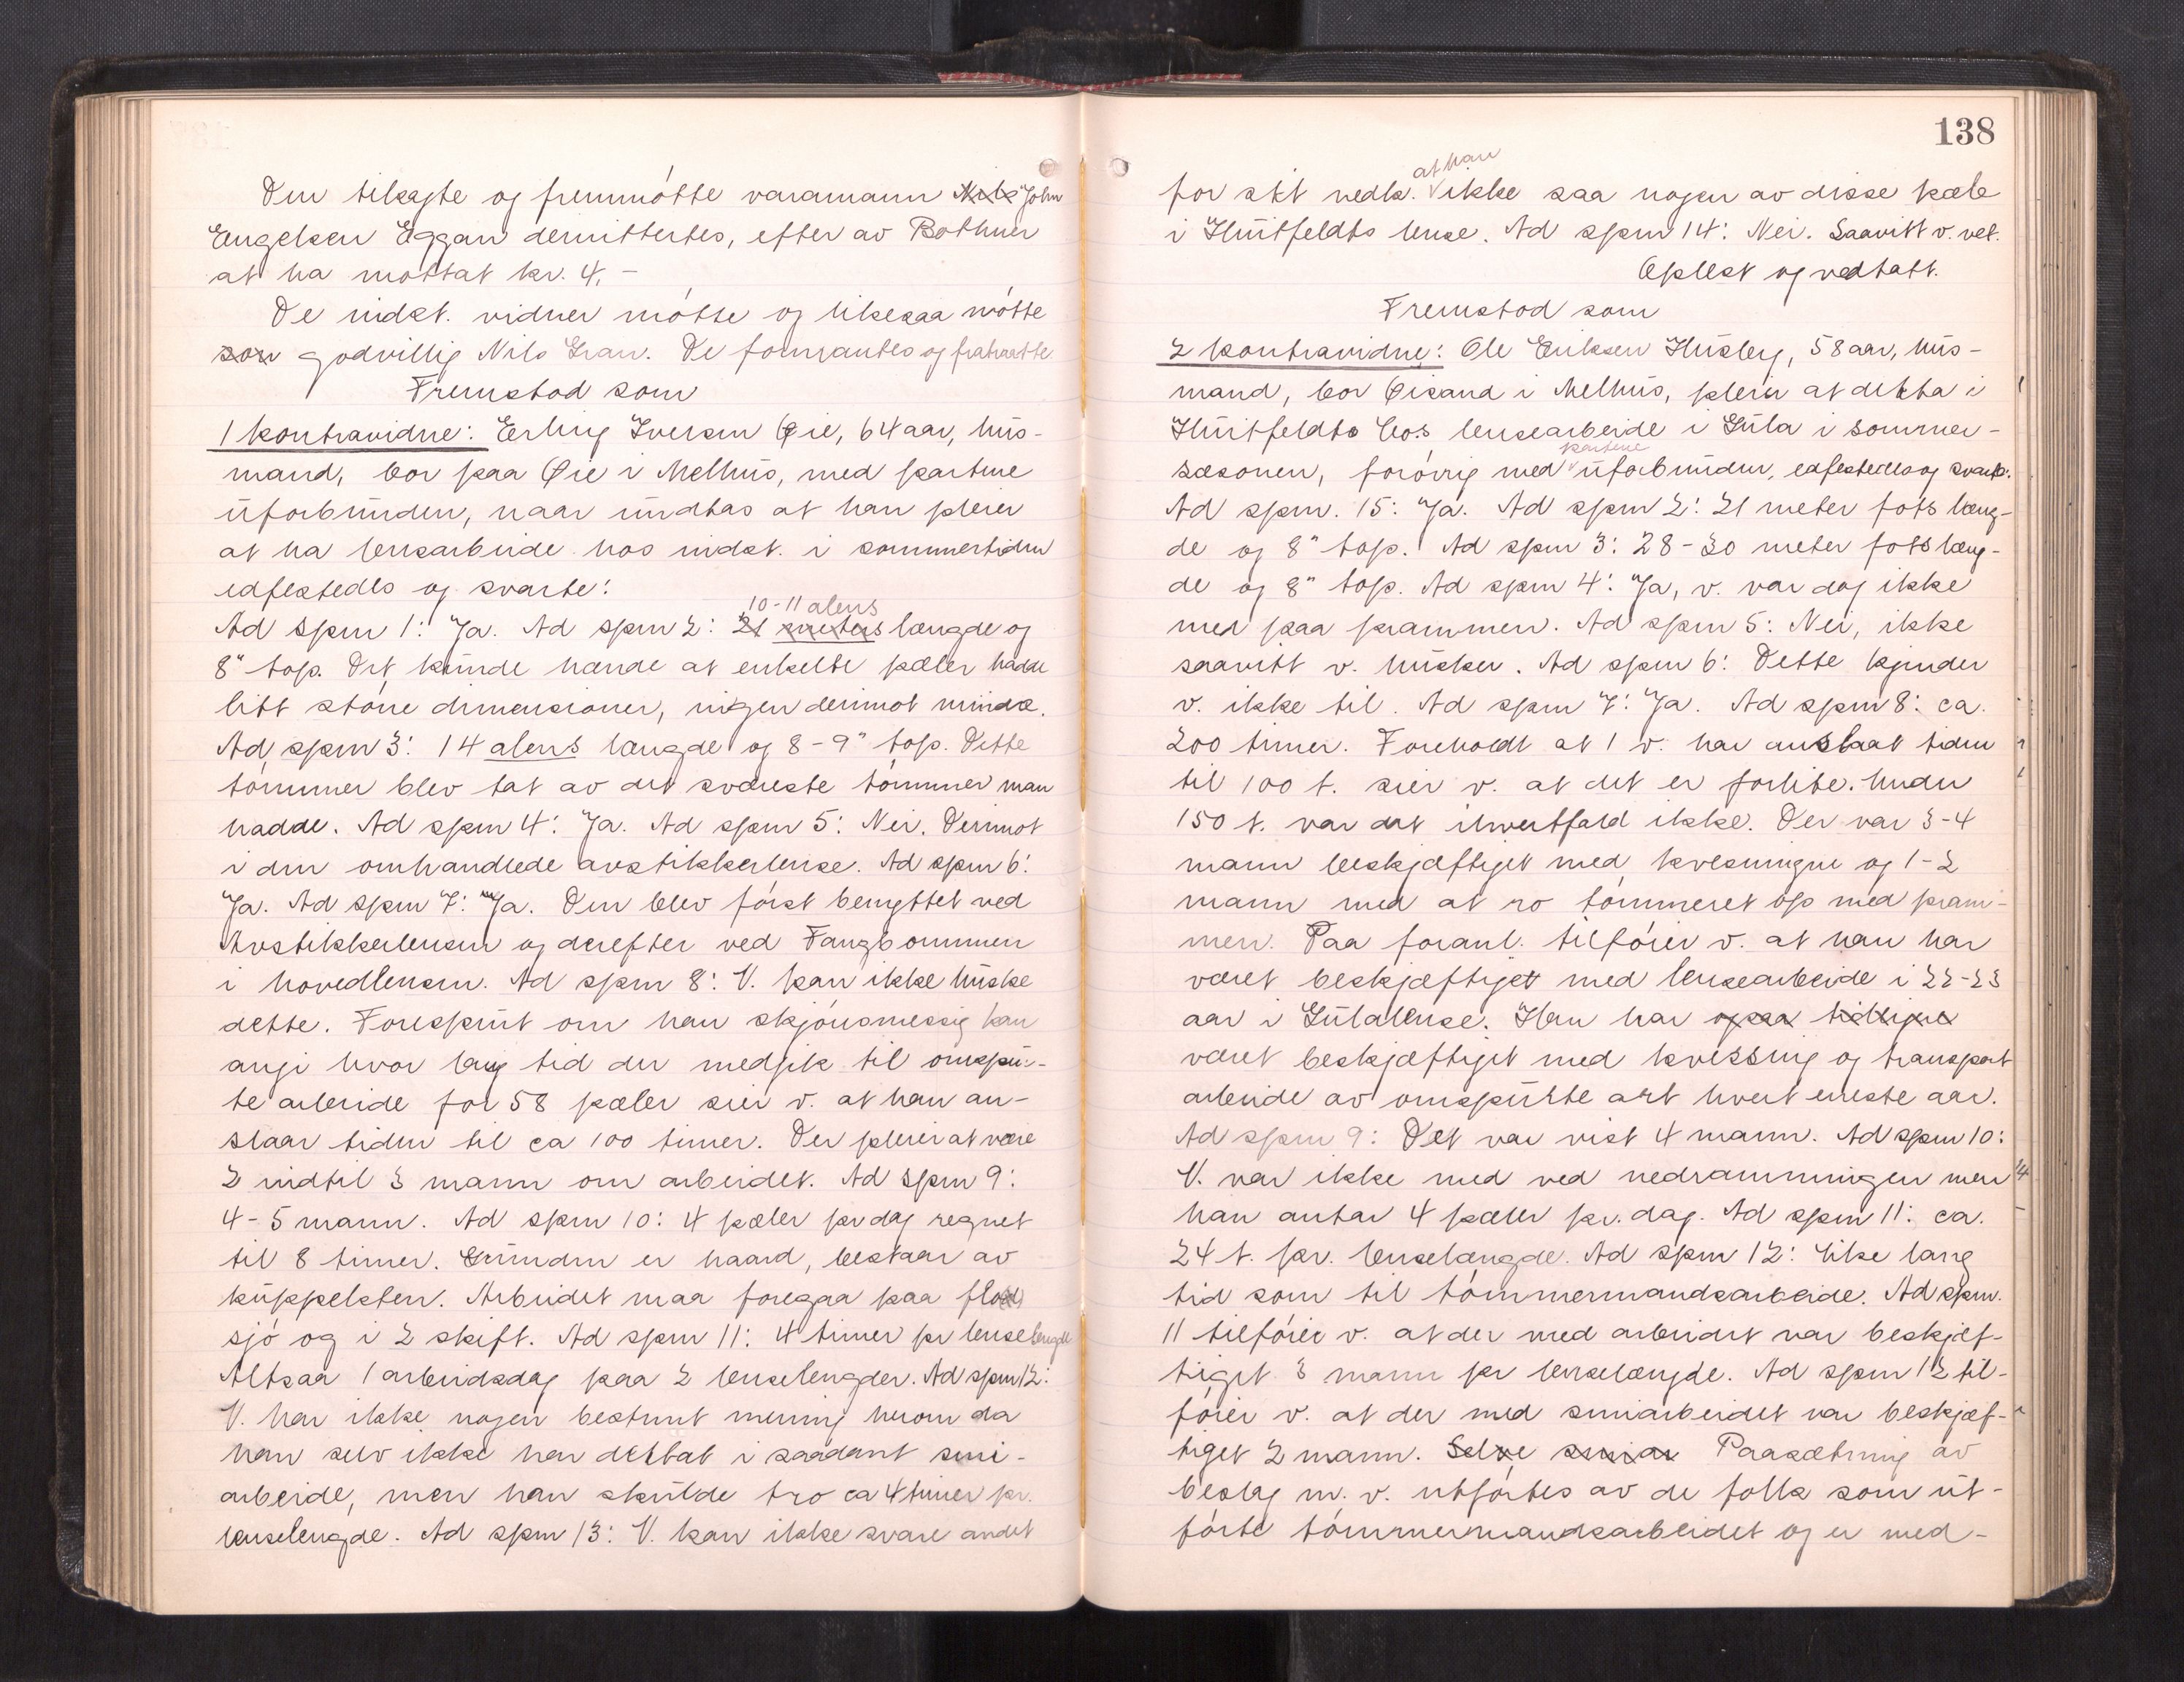 Den tilsagte og fremmøtte varamann Nils John
Engelsen Eggan demittertes, efter av Bothner
at ha mottat kr. 4,-
De indst. vidner møtte og likesaa møtte
som godvillig Nils Gran. De formantes og fratraatte
Fremstod som
1 kontravidne: Erling Iversen Øie, 64 aar, hus-
mand, bor paa Øie i Melhus, med partene
uforbunden, naar undtas at han pleier
at ha lensearbeide hos indst. i sommertiden
edfestedes og svarte:
10-11 alens
Ad spm 1: Ja. Ad spm 2: 21 meters længde og
8" top. Det kunde hænde at enkelte pæler hadde
litt større dimensioner, ingen derimot mindre.
Ad spm 3: 14 alens længde og 8-9" top. Dette
tømmer blev tat av det sværeste tømmer man
hadde. Ad spm 4: Ja. Ad spm 5: Nei. Derimot
i den omhandlede avstikkerlense. Ad spm 6:
Ja. Ad spm 7: Ja. Den blev først benyttet ved
Avstikkerlensen og derefter ved Fangbommen
i hovedlensen. Ad spm 8: V. kan ikke huske
dette. Forespurt om han skjønsmessig kan
angi hvor lang tid der medgik til omspur-
te arbeide for 58 pæler sier v. at han an-
slaar tiden til ca 100 timer. Der pleier at være
2 indtil 3 mann om arbeidet. Ad spm 9:
4-5 mann. Ad spm 10: 4 pæler pr dag regnet
til 8 timer. Grunden er haard, bestaar av
kuppelsten. Arbeidet maa foregaa paa flod
sjø og i 2 skift. Ad spm 11: 4 timer pr lenselengde
Altsaa 1 arbeidsdag paa 2 lenselengder. Ad spm 12:
V. har ikke nogen bestemt mening herom da
han selv ikke har deltat i saadant smi-
arbeide, men han skulde tro ca 4 timer pr.
lenselengde. Ad spm 13: V. kan ikke svare andet
138
at han
for sit vedk. ikke saa nogen av disse pæle
i Huitfeldts lense. Ad spm 14: Nei. Saavitt v. vet.
Oplest og vedtatt.
Fremstod som
2 kontravidne: Ole Eriksen Husby, 58 aar, hus-
mand, bor Øisand i Melhus, pleier at delta i
Huitfeldt & Co.s lensearbeide i Gula i sommer-
partene
sæsonen, forøvrig med uforbunden, edfestedes og svarte:
Ad spm. 15: Ja. Ad spm 2: 21 meter fots læng-
de og 8" top. Ad spm 3: 28-30 meter fots læng-
de og 8" top. Ad spm 4: Ja, v. var dog ikke
med paa prammen. Ad spm 5: Nei, ikke
saavitt v. husker. Ad spm 6: Dette kjender
v. ikke til. Ad spm 7: Ja. Ad spm 8: ca.
200 timer. Foreholdt at 1 v. har anslaat tiden
til 100 t. sier v. at det er forlite. Under
150 t. var det ihvertfald ikke. Der var 3-4
mann beskjæftiget med kvesningen og 1-2
mann med at ro tømmeret op med pram-
men. Paa foranl. tilføier v. at han har
været beskjæftiget med lensearbeide i 22-23
aar i Gulalense. Han har ogsaa tidligere
været beskjæftiget med kvessing og transport
arbeide av omspurte art hvert eneste aar.
Ad spm 9: Det var vist 4 mann. Ad spm 10:
V. var ikke med ved nedramningen men
han antar 4 pæler pr. dag. Ad spm 11: ca.
24 t. pr. lenselængde. Ad spm 12: like lang
tid som til tømmermandsarbeide. Ad spm.
11 tilføier v. at der med arbeidet var beskjæf-
tiget 3 mann pr lenselængde. Ad spm 12 til-
føier v. at der med smiarbeidet var beskjæf-
tiget 2 mann. Selve smiar Paasætning av
beslag m. v. utførtes av de folk som ut-
førte tømmermandsarbeidet og er med-